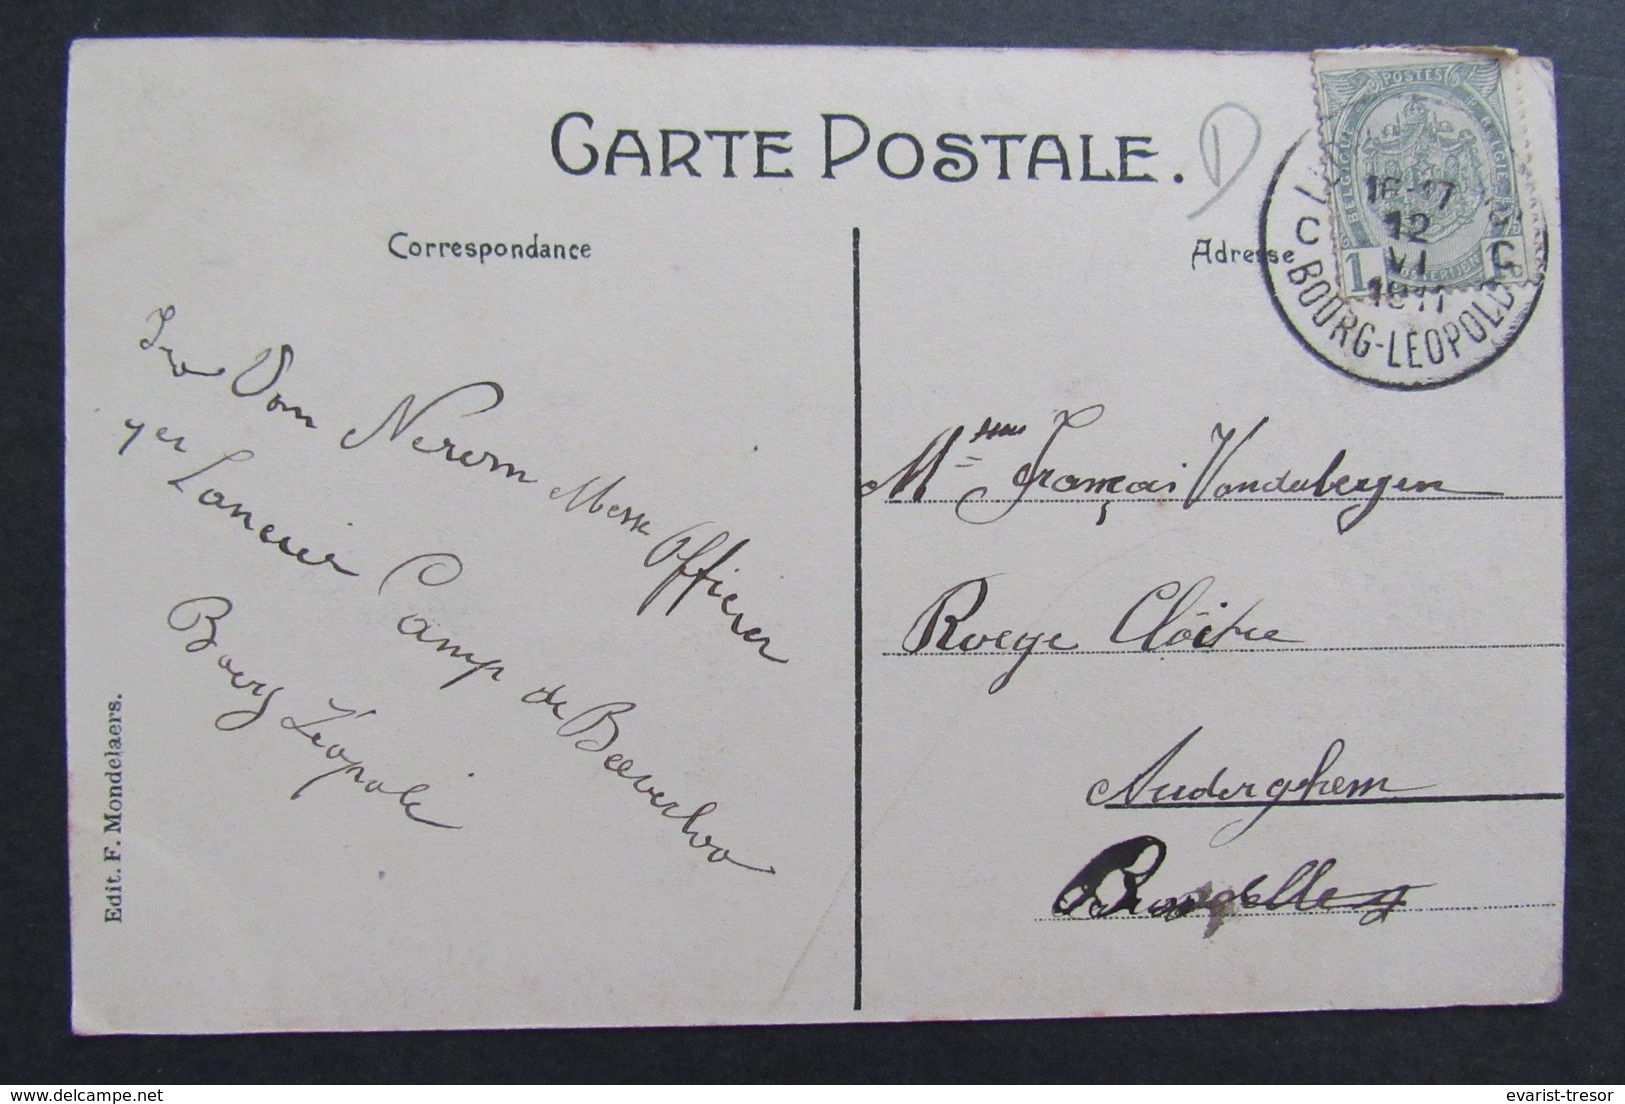 CARTE POSTALE.
D
Correspondance
Adresse
POSTES
BELGIQUE
1
16-17
12
VI
1911
BOURG-LEOPOLD
Van Nerom Messe Officier
1er Lancier Camp de Beverloo
Bourg Léopold
Edit. F. Mondelaers.
Mme François Vandenbergen
Rouge Cloître
Auderghem
Bruxelles
delcampe.net
evarist-tresor